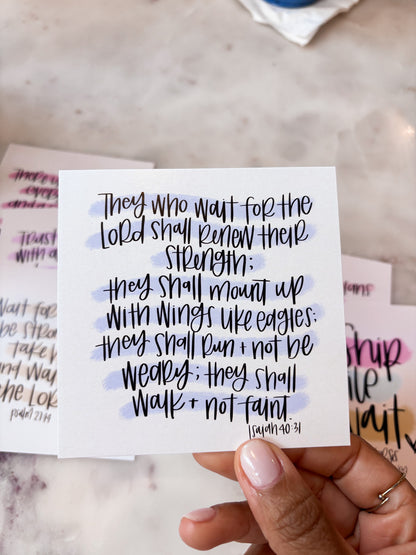 They who wait for the
Lord shall renew their
strength;
they shall mount up
with wings like eagles;
they shall run + not be
weary; they shall
walk + not faint.
Isaiah 40:31
Trust
with a
wait for
be stron
take
and wai
the Lor
psalm 27:14
ship
wait